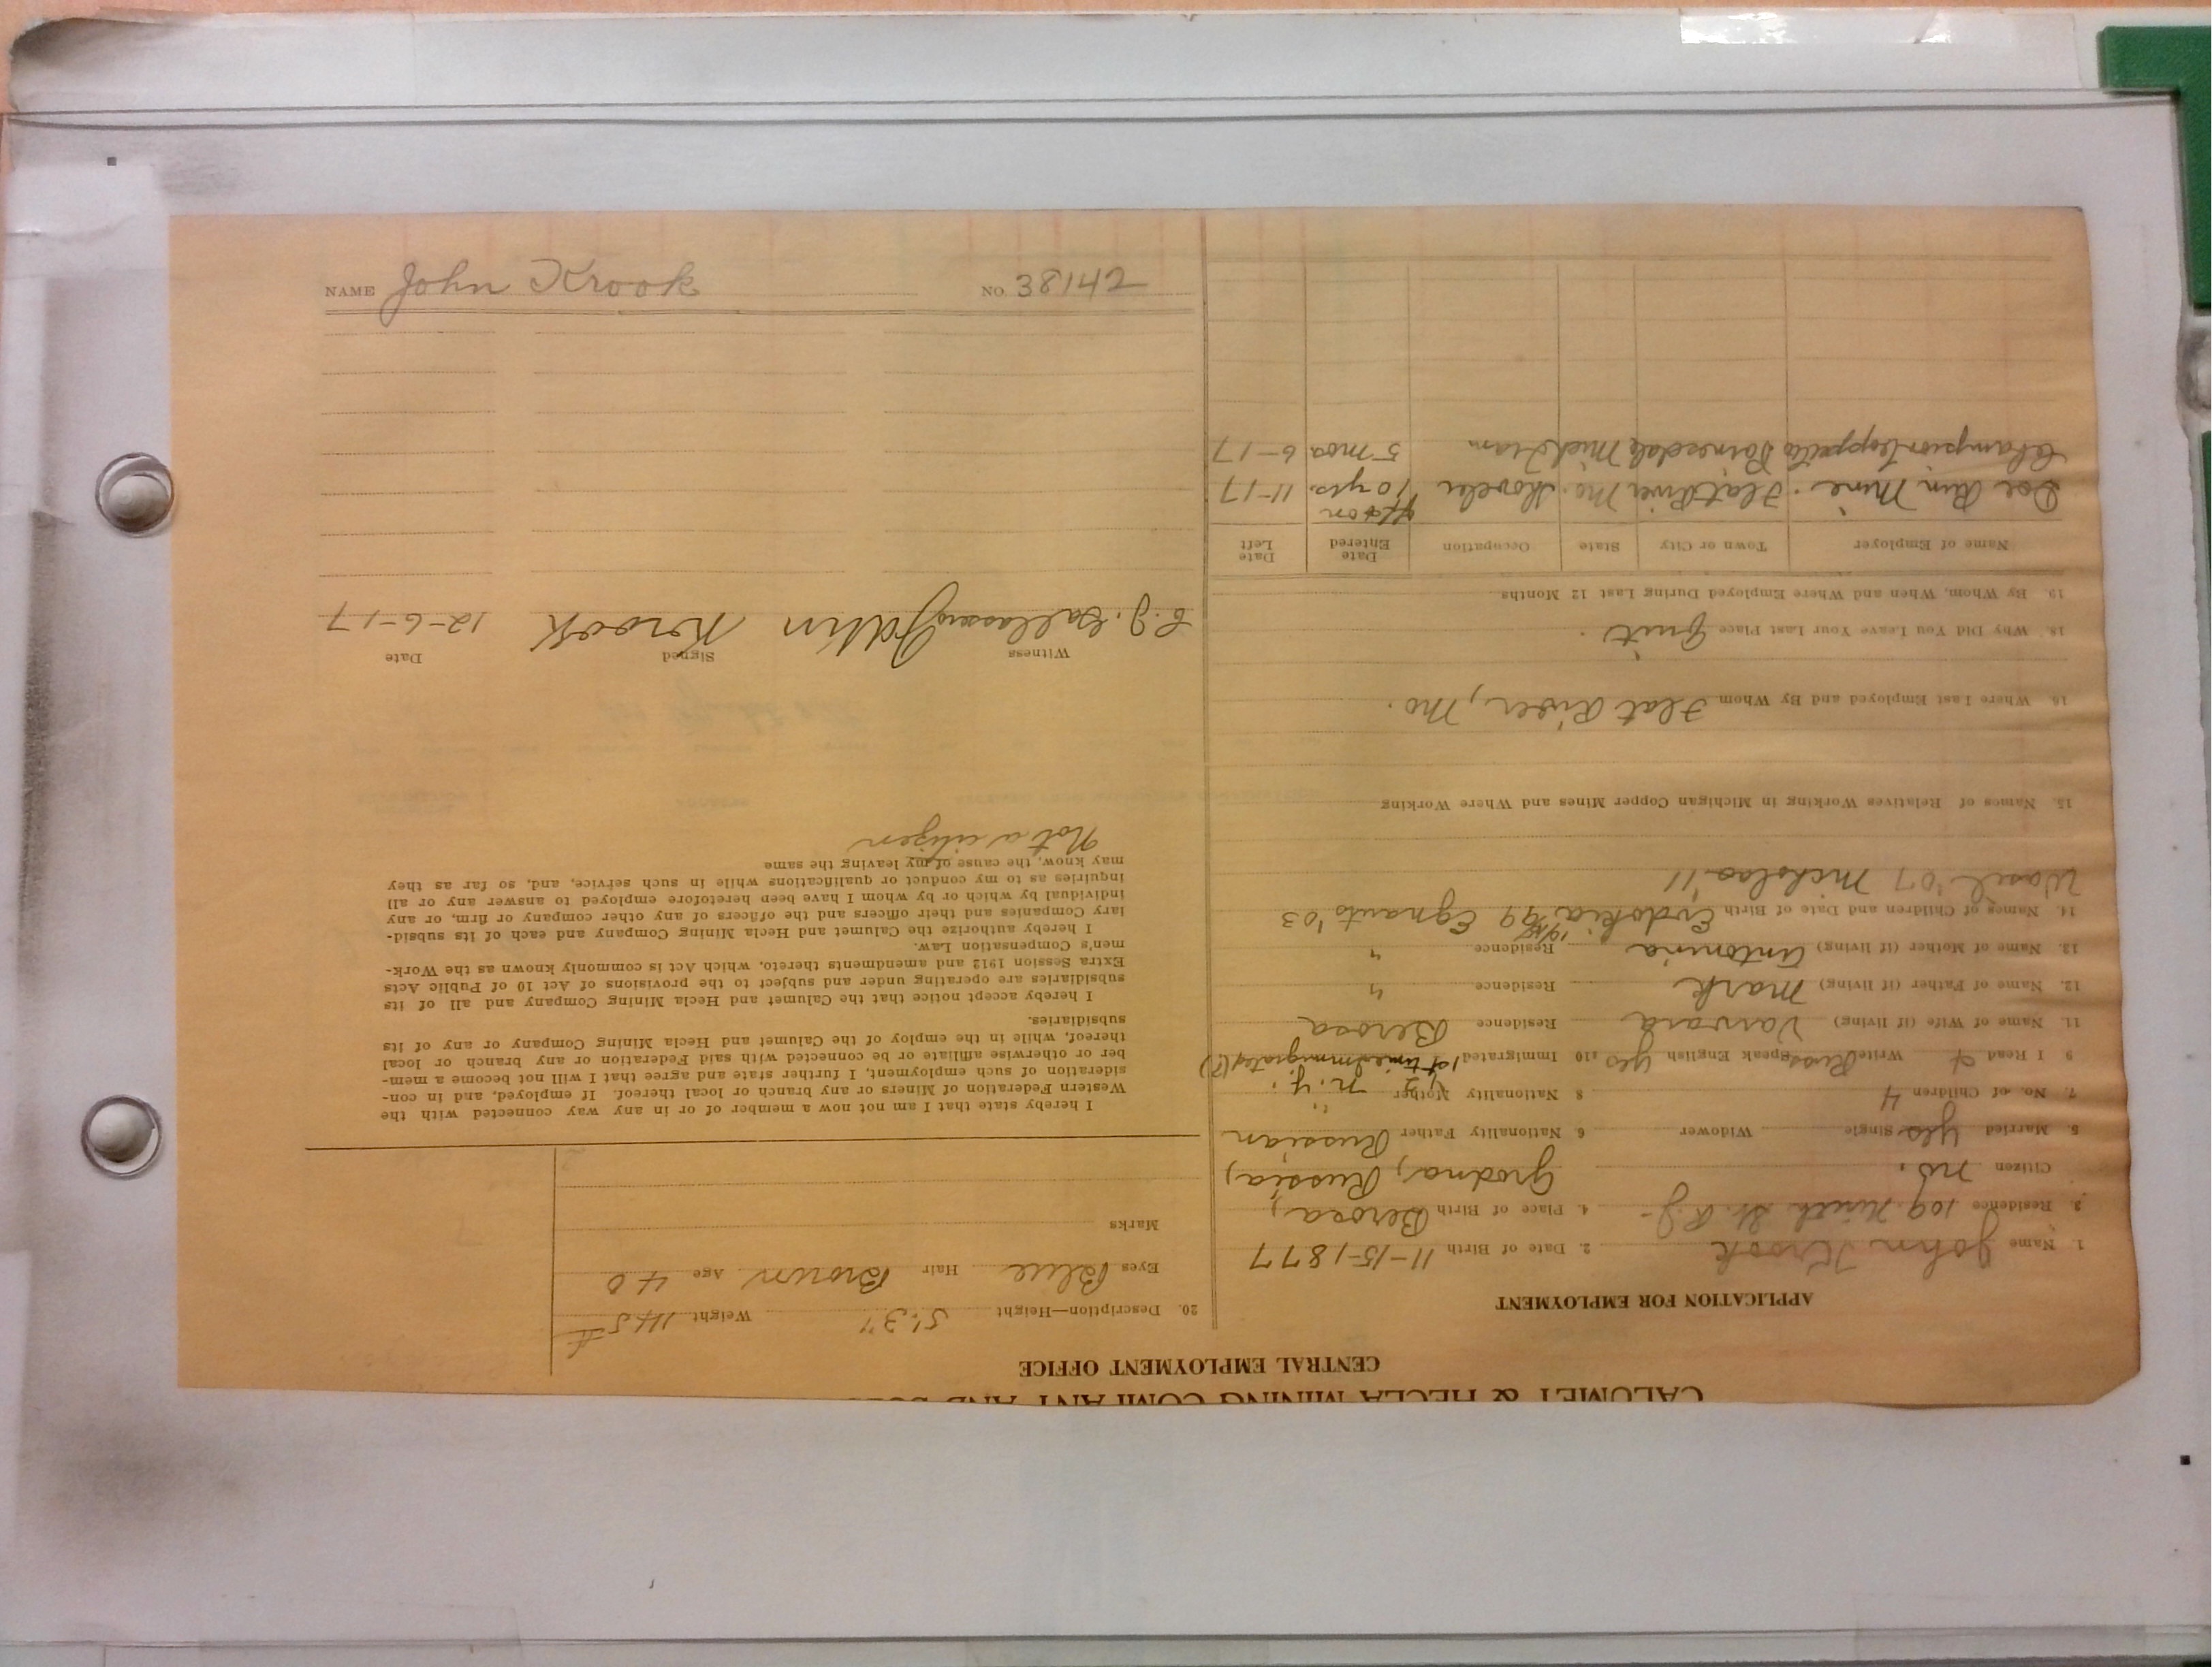 NAME John Krook NO. 38142
CALUMET & HECLA MINING COMPANY AND
CENTRAL EMPLOYMENT OFFICE
APPLICATION FOR EMPLOYMENT
1. Name John Krook 2. Date of Birth 11-15-1877
3. Residence 109 St. R.J. 4. Place of Birth Beroza,
Citizen no. Grodna, Russia,
5. Married yes Single Widower 6. Nationality Father Russian
7. No. of Children 4 8 Nationality Mother "
9 I Read & Write Russ Speak English yes 10 Immigrated N.Y. 1st time immigrated (?)
11. Name of Wife (if living) Varvara Residence Beroza
12. Name of Father (if living) Mark Residence "
13. Name of Mother (if living) Antonina Residence "
14. Names of Children and Date of Birth Evdokia '99 Egnants '03
Wasil '07 Nicholas '11
15. Names of Relatives Working in Michigan Copper Mines and Where Working
16. Where Last Employed and By Whom Flat River, Mo.
18. Why Did You Leave Your Last Place Quit.
19. By Whom, When and Where Employed During Last 12 Months
Name of Employer Town or City State Occupation Date Entered Date Left
Doe Run Mine. Flat River Mo. Shoveler off & on 10 yrs. 11-17
Champion Copper Co Painesdale Mich Tram 5 mos 6-17
20. Description—Height 5'.3" Weight 145#
Eyes Blue Hair Brown Age 40
Marks
I hereby state that I am not now a member of or in any way connected with the
Western Federation of Miners or any branch or local thereof. If employed, and in con-
sideration of such employment, I further state and agree that I will not become a mem-
ber or otherwise affiliate or be connected with said Federation or any branch or local
thereof, while in the employ of the Calumet and Hecla Mining Company or any of its
subsidiaries.
I hereby accept notice that the Calumet and Hecla Mining Company and all of its
subsidiaries are operating under and subject to the provisions of Act 10 of Public Acts
Extra Session 1912 and amendments thereto, which Act is commonly known as the Work-
men's Compensation Law.
I hereby authorize the Calumet and Hecla Mining Company and each of its subsid-
iary Companies and their officers and the officers of any other company or firm, or any
individual by which or by whom I have been heretofore employed to answer any or all
inquiries as to my conduct or qualifications while in such service, and, so far as they
may know, the cause of my leaving the same
Not a citizen
Witness Signed Date
E.J. John Krook 12-6-17